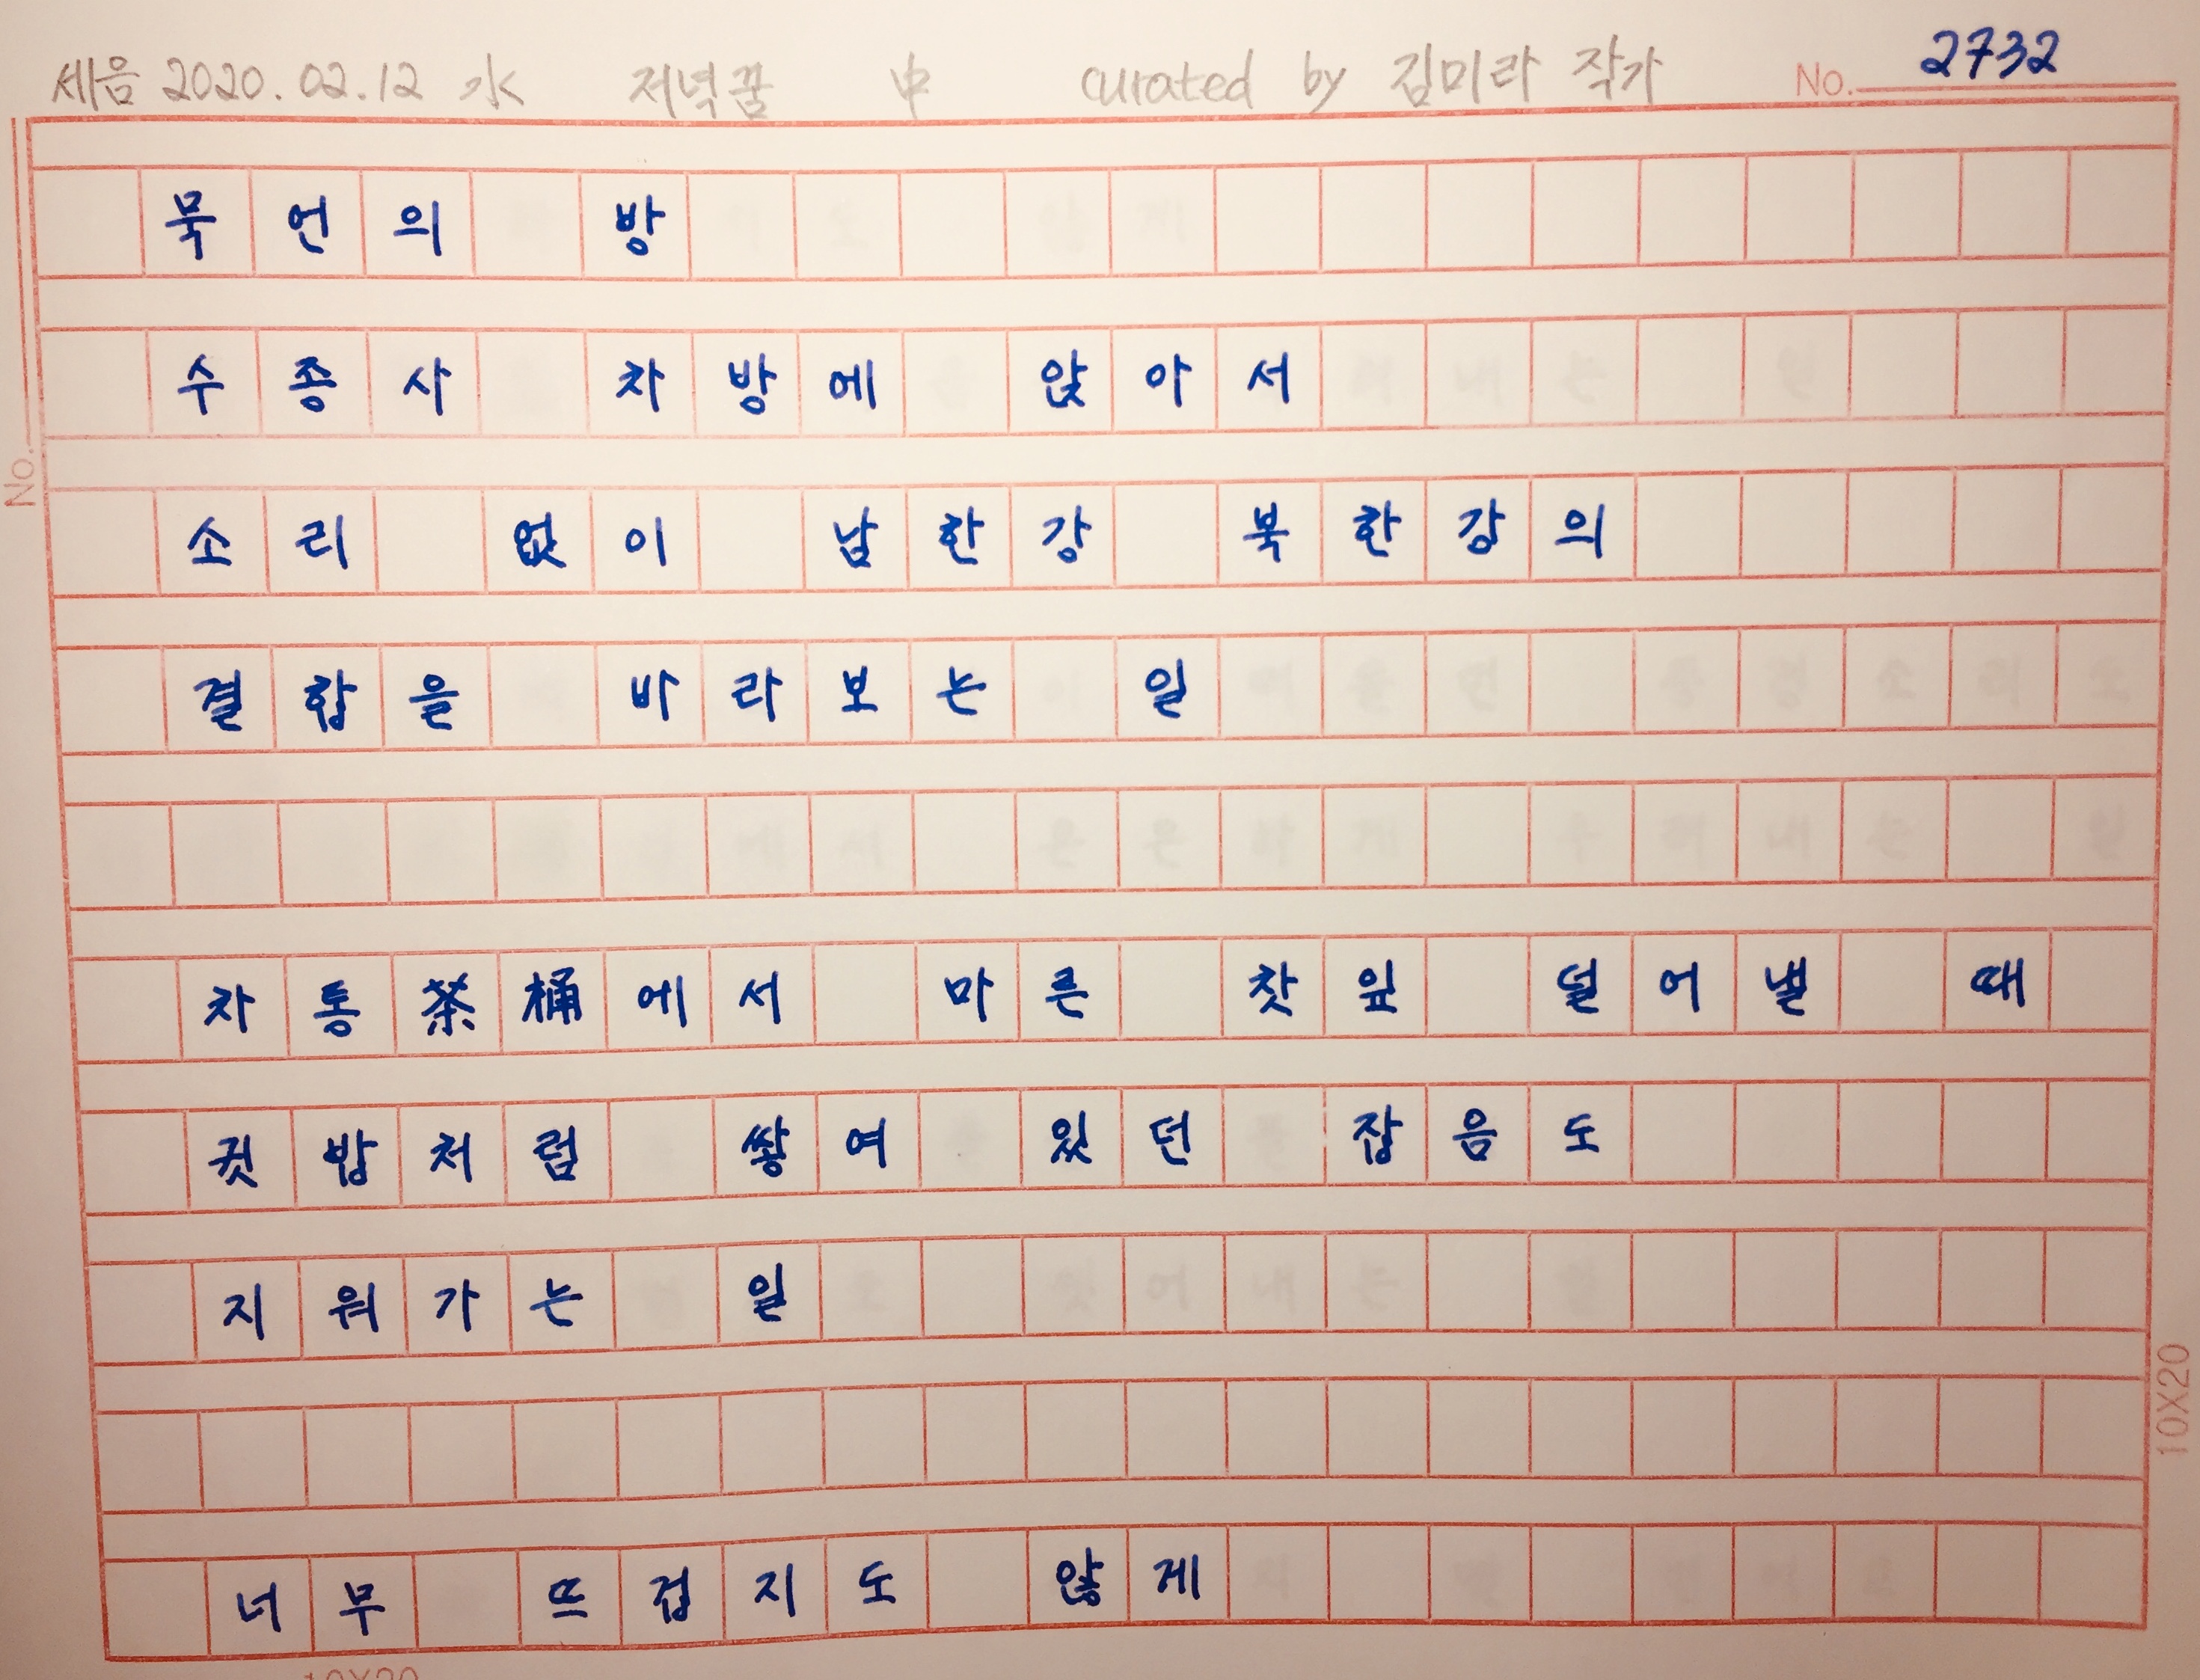 세음 2020.02.12 水 저녁꿈 中 curated by 김미라 작가 No. 2732
묵언의 방
수종사 차방에 앉아서
소리 없이 남한강 북한강의
No.
결합을 바라보는 일
차통茶桶에서 마른 찻잎 덜어낼 때
귓밥처럼 쌓여 있던 잡음도
지워가는 일
10X20
너무 뜨겁지도 않게
10X20